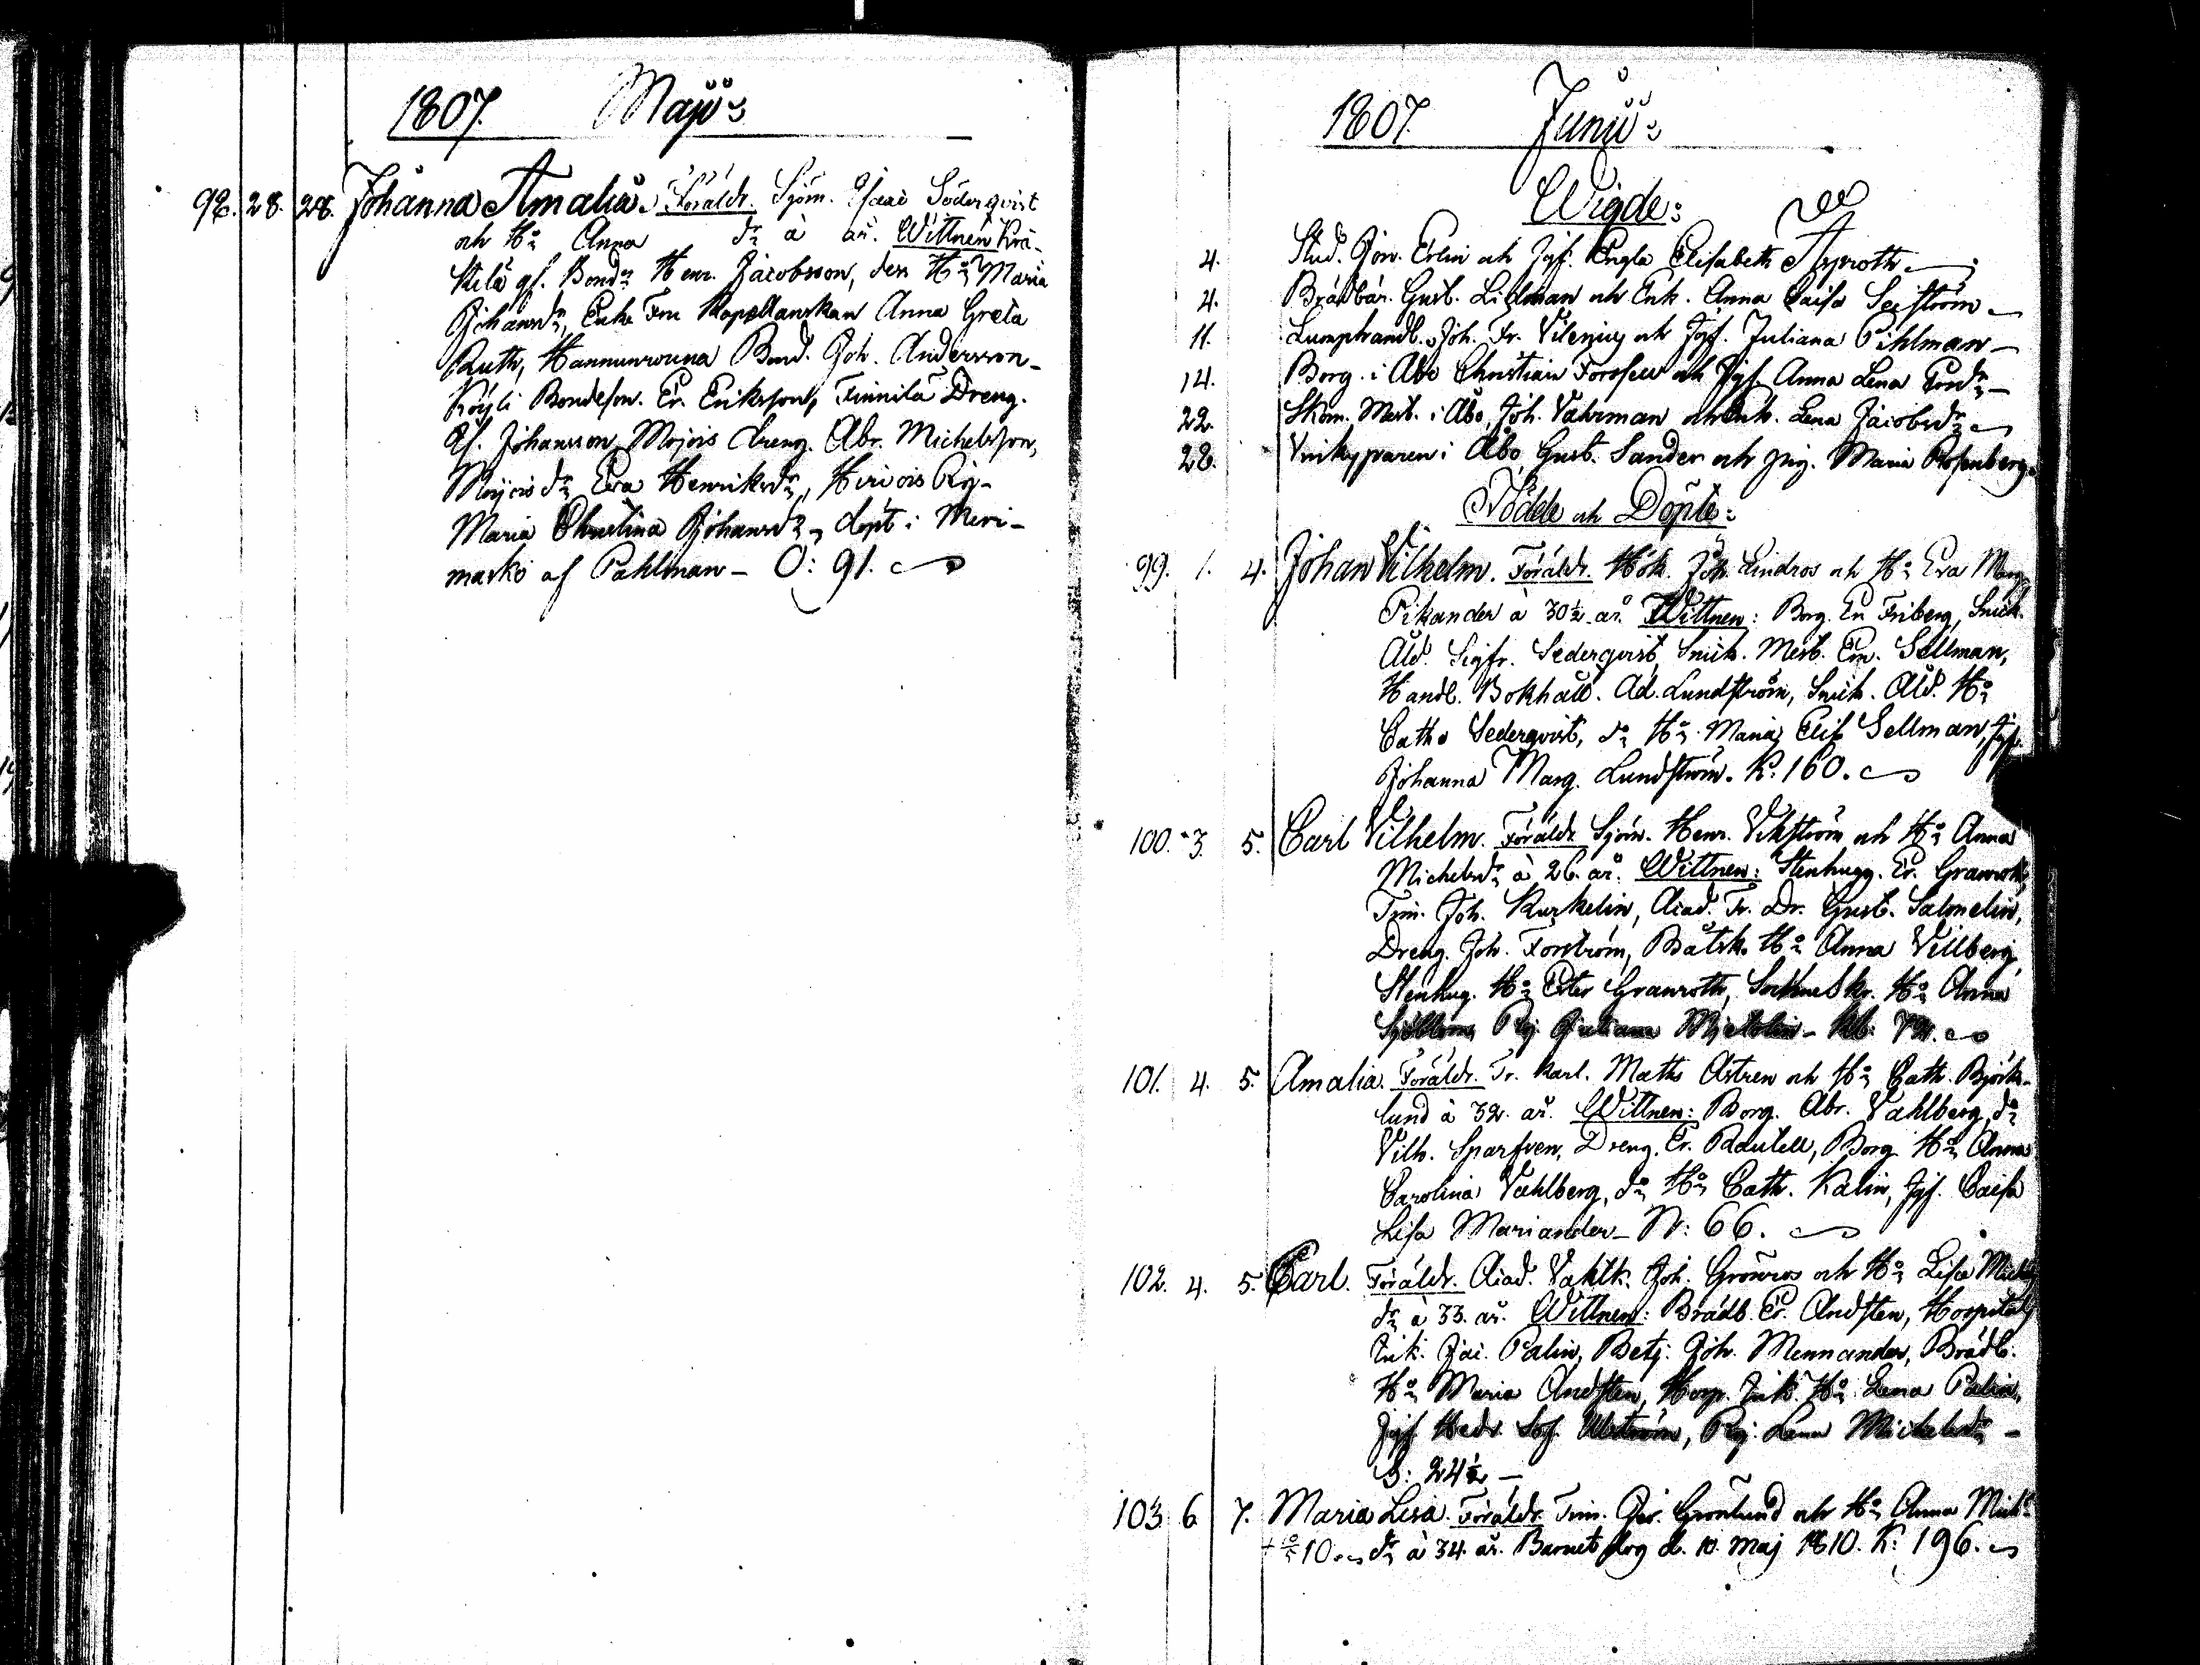 1807. Majus
98. 28. 28. Johanna Amalia. Föräldr. Sjöm. Isaac Söderqvist
och H:u Anna dr à år. Wittnen Krä-
kelä gf. Bond: Henr. Jacobsson, dess H:u Maria
Johansdr, Enke Fru Kapellanskan Anna Greta
Ruth, Hannunrouna Bond. Joh. Andersson-
Röyli Bondeson. Er. Eriksson, Finnilä Dreng.
Gf. Johansson, Mojois dreng. Abr. Michelsson,
Mojois dr Eva Henriksdr, Hiriois Pig-
Maria Christina Johansdr, döpt i Meri-
masko af Pahlman - O: 91.
1807. Junius
Wigde:
4. Stud. Jon. Erlin och Jgf. Engla Elisabeth
4. Brädbär. Gust. Lidman och Enk. Anna Caisa
11. Lumphandl. Joh. Fr. och Jgf. Juliana Pihlman -
14. Borg. i Åbo Christian Forssell och Jgf. Anna Lena
22. Skom. Mest. i Åbo, Joh. Vahrman och Enk. Lena Jacobsdr
28. Vinkyparen i Åbo, Gust. Sander och pig. Maria Rosenberg.
Födde och Döpte:
99. 1. 4. Johan Vilhelm. Föräldr. Hök. Joh. Lindros och H:u Eva Marg.
Pikander à 30½ år. Wittnen: Borg. Er Friberg, Snick.
Åld. Sigfr. Sederqvist, Snick. Mest. Em. Sellman,
Handl. Bokhåll. Ad. Lundström, Snick. Åld. H:u
Cath. Sederqvist, dr H:u Maria Elis Sellman, Jgf.
Johanna Marg. Lundström. K: 160.
100. 3. 5. Carl Vilhelm. Föräldr. Sjöm. Henr. Vikström och H:u Anna
Michelsdr à 26. år. Wittnen: Stenhugg. Er. Granroth,
Tim. Joh. Kurkelin, Acad. Tr. Dr. Gust. Salmelin,
Dreng. Joh. Forström, Båtsk. H:u Anna Villberg,
Stenhug. H:u Ester Granroth, H:u Anna
Sjöblom, Pig Juliana
101. 4. 5. Amalia. Föräldr. Tr. Karl. Maths Astren och H:u Cath. Björk-
lund à 32. år. Wittnen: Borg. Abr. Vahlberg, do
Vilh. Sparfven, Dreng. Er. Rautell, Borg. H:u Anna
Carolina Vahlberg, do H:u Cath. Kalin, Jgf. Caisa
Lisa Mariander - N: 66.
102. 4. 5. Carl. Föräldr. Acad. Vaktk. Joh. Grönros och H:u Lisa Michels
dr à 33. år. Wittnen: Brädb. Er. Andsten, Hospitals
Jac. Palin, Betj. Joh. Mennander, Brädb.
H:u Maria Andsten, Hosp. H:u Lena Palin,
Jgf. Hedv. Sof. Pig. Lena Michelsdr -
S: 24½ -
103 6 7. Maria Lisa. Föräldr. Tim. Grönlund och H:u Anna Mich:
10. dr à 34. år. Barnet dog d. 10. Maj 1810. K: 196.